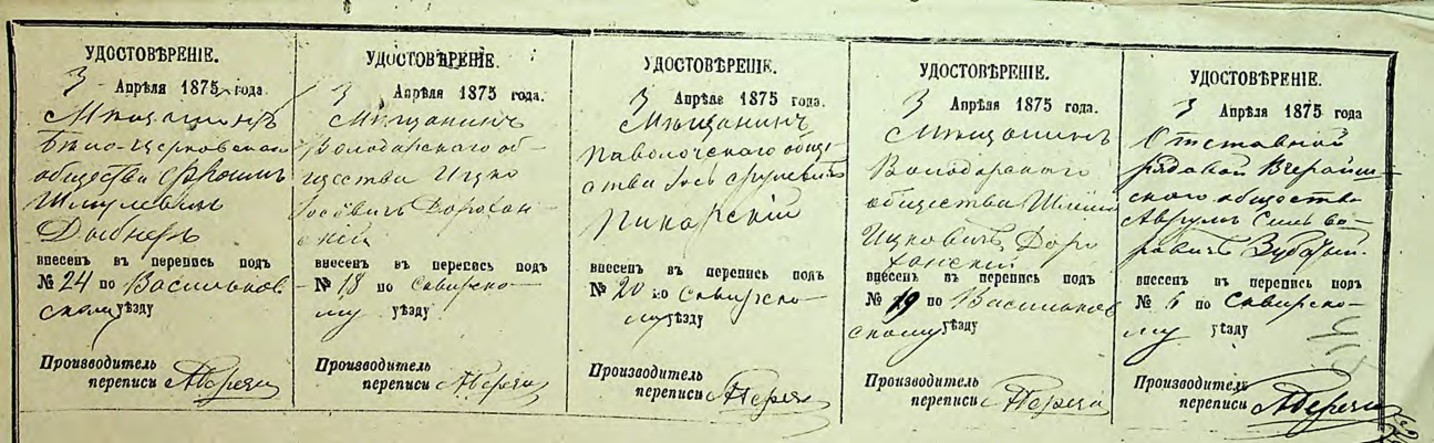 УДОСТОВѢРЕНІЕ.
3 Апрѣля 1875 года.
Мѣщанинъ
Бѣло-Церковскаго
общества Фроимъ
Шмулевичъ
внесенъ въ перепись подъ
№ 24 по Васильков-
скому уѣзду
Производитель
переписи
УДОСТОВѢРЕНІЕ.
3 Апрѣля 1875 года.
Мѣщанинъ
Володарскаго об-
щества Ицко
Іосевичъ
внесенъ въ перепись подъ
№ 18 по Сквирско-
му уѣзду
Производитель
переписи
УДОСТОВѢРЕНІЕ.
3 Апрѣля 1875 года.
Мѣщанинъ
Паволочскаго обще-
ства Іось Срулевичъ
Пикарскій
внесенъ въ перепись подъ
№ 20 по Сквирско-
му уѣзду
Производитель
переписи
УДОСТОВѢРЕНІЕ.
3 Апрѣля 1875 года.
Мѣщанинъ
Володарскаго
общества
Ицковичъ
внесенъ въ перепись подъ
№ 19 по Васильков-
скому уѣзду
Производитель
переписи
УДОСТОВѢРЕНІЕ.
3 Апрѣля 1875 года
Отставной
рядовой Вчерайш-
скаго общества
Аврумъ
внесенъ въ перепись подъ
№ 6 по Сквирско-
му уѣзду
Производитель
переписи